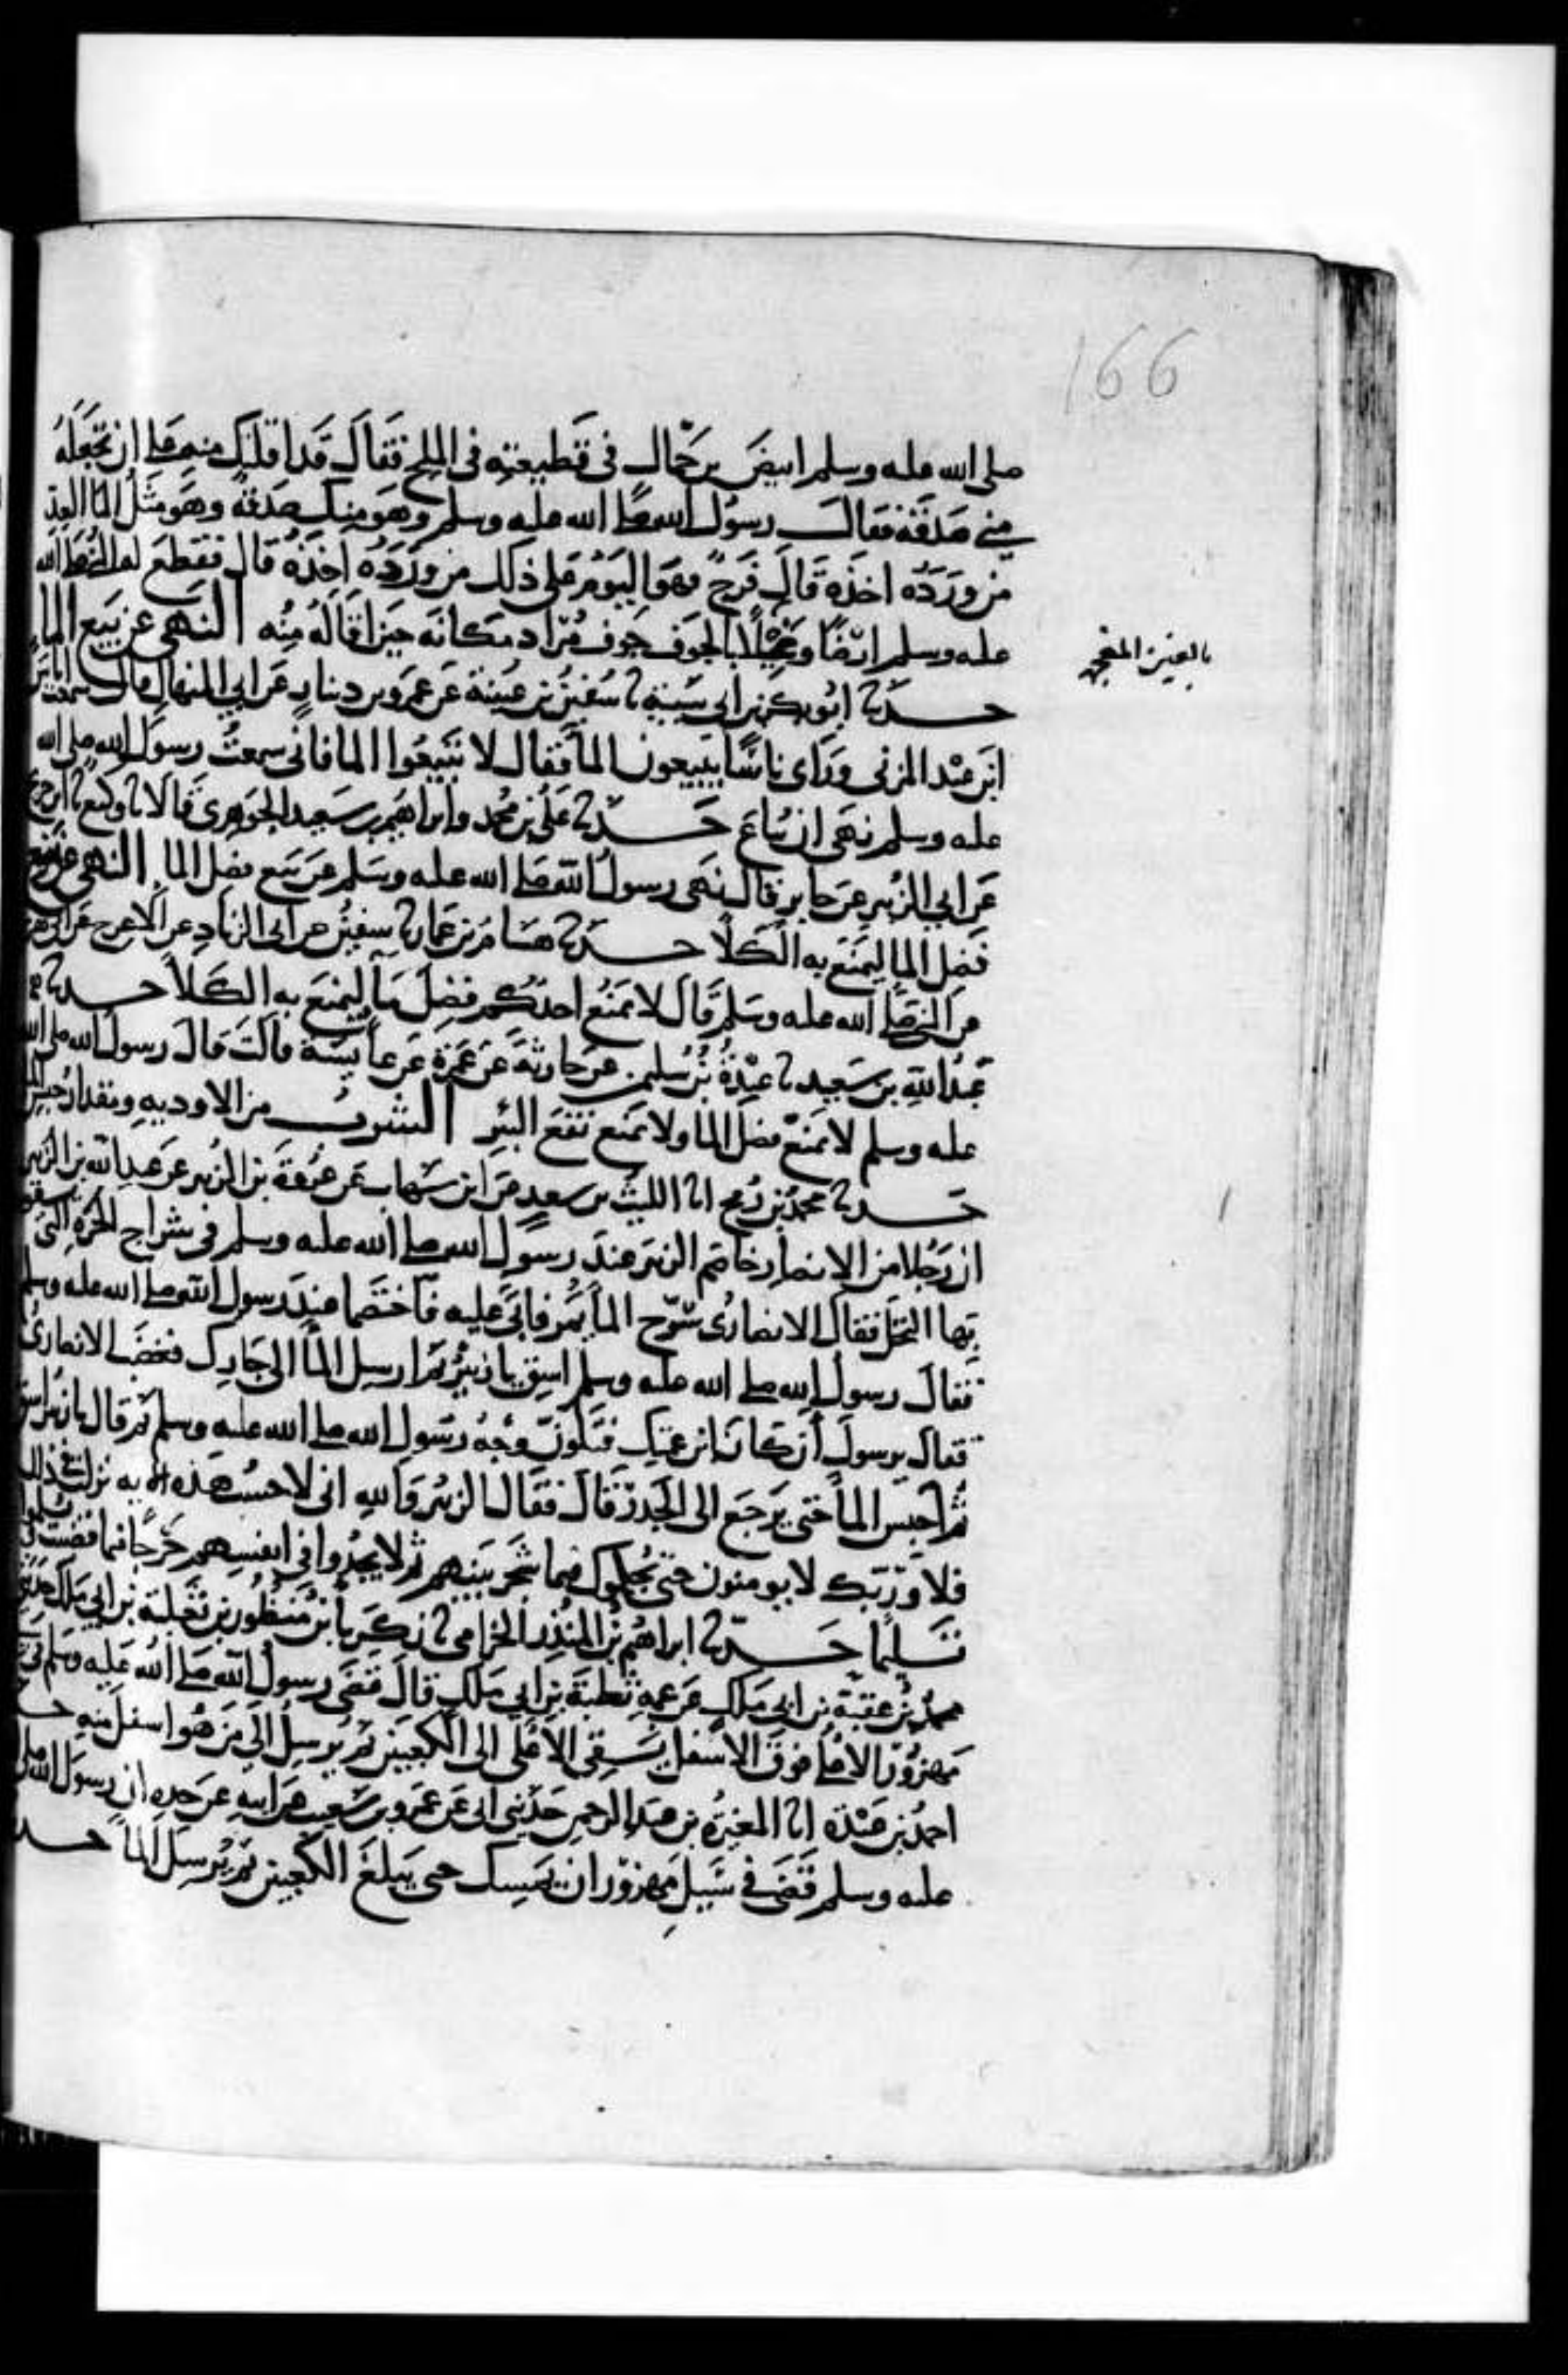 166
صلى الله عليه وسلم ابيض بن حمّال في قطيعته في الملح فقال قد اقلتك منه على ان تجعله
مني صدقة فقال رسول الله صلى الله عليه وسلم وهو منك صدقة وهو مثل الما العد
من ورده اخذه قال فرج فهو اليوم على ذلك من ورده اخذه قال فقطع له النبي صلى الله
عليه وسلم ارضا ونخيلا بالجوف جوف مراد مكانه حين اقاله منه النهي عن بيع الماء
بالعين المعجمه
حدثنا ابو بكر بن ابي شيبة نا سفين بن عيينة عن عمرو بن دينار عن ابي المنهال قال سمعت اياس
ابن عبد المزني وراى ناسا يبيعون الما فقال لا تبيعوا الما فاني سمعت رسول الله صلى الله
عليه وسلم نهى ان يباع حدثنا علي بن محمد وابراهيم بن سعيد الجوهري قالا نا وكيع نا ابن جريج
عن ابي الزبير عن جابر قال نهى رسول الله صلى الله عليه وسلم عن بيع فضل الما النهي عن منع
فضل الما ليمنع به الكلا حدثنا هشام بن عمار نا سفين عن ابي الزناد عن الاعرج عن ابي
عن النبي صلى الله عليه وسلم قال لا يمنع احدكم فضل ما ليمنع به الكلا حدثنا
عبد الله بن سعيد نا عبدة بن سليمن عن حارثة عن عمرة عن عايشة قالت قال رسول الله صلى الله
عليه وسلم لا يمنع فضل الما ولا يمنع نقع البئر الشرب من الاوديه ومقدار حبس
حدثنا محمد بن رمح انا الليث بن سعد عن ابن شهاب عن عروة بن الزبير عن عبد الله بن الزبير
ان رجلا من الانصار خاصم الزبير عند رسول الله صلى الله عليه وسلم في شراج الحرة التي يسقون
بها النخل فقال الانصاري سرّح الما يمر فابى عليه فاختصما عند رسول الله صلى الله عليه وسلم
فقال رسول الله صلى الله عليه وسلم اسق يا زبير ثم ارسل الما الى جارك فغضب الانصاري
فقال يرسول أن كان ابن عمتك فتلون وجه رسول الله صلى الله عليه وسلم ثم قال يا زبير اسق
ثم احبس الما حتى يرجع الى الجدر قال فقال الزبير والله اني لاحسب هذه الايه نزلت في ذلك
فلا وربك لا يومنون حتى يحكموك فيما شجر بينهم ثم لا يجدوا في انفسهم حرجا مما قضيت ويسلموا
تسليما حدثنا ابراهيم بن المنذر الحزامي نا زكريا بن منظور بن ثعلبة بن ابي ملك حدثني
محمد بن عقبة بن ابي ملك عن عمه ثعلبة بن ابي ملك قال قضى رسول الله صلى الله عليه وسلم في
مهزور الاعلى فوق الاسفل يسقي الاعلى الى الكعبين ثم يرسل الى من هو اسفل منه
احمد بن عبدة انا المغيرة بن عبد الرحمن حدثني ابي عن عمرو بن شعيب عن ابيه عن جده ان رسول الله صلى
عليه وسلم قضى في سيل مهزور ان يمسك حتى يبلغ الكعبين ثم يرسل الما حد